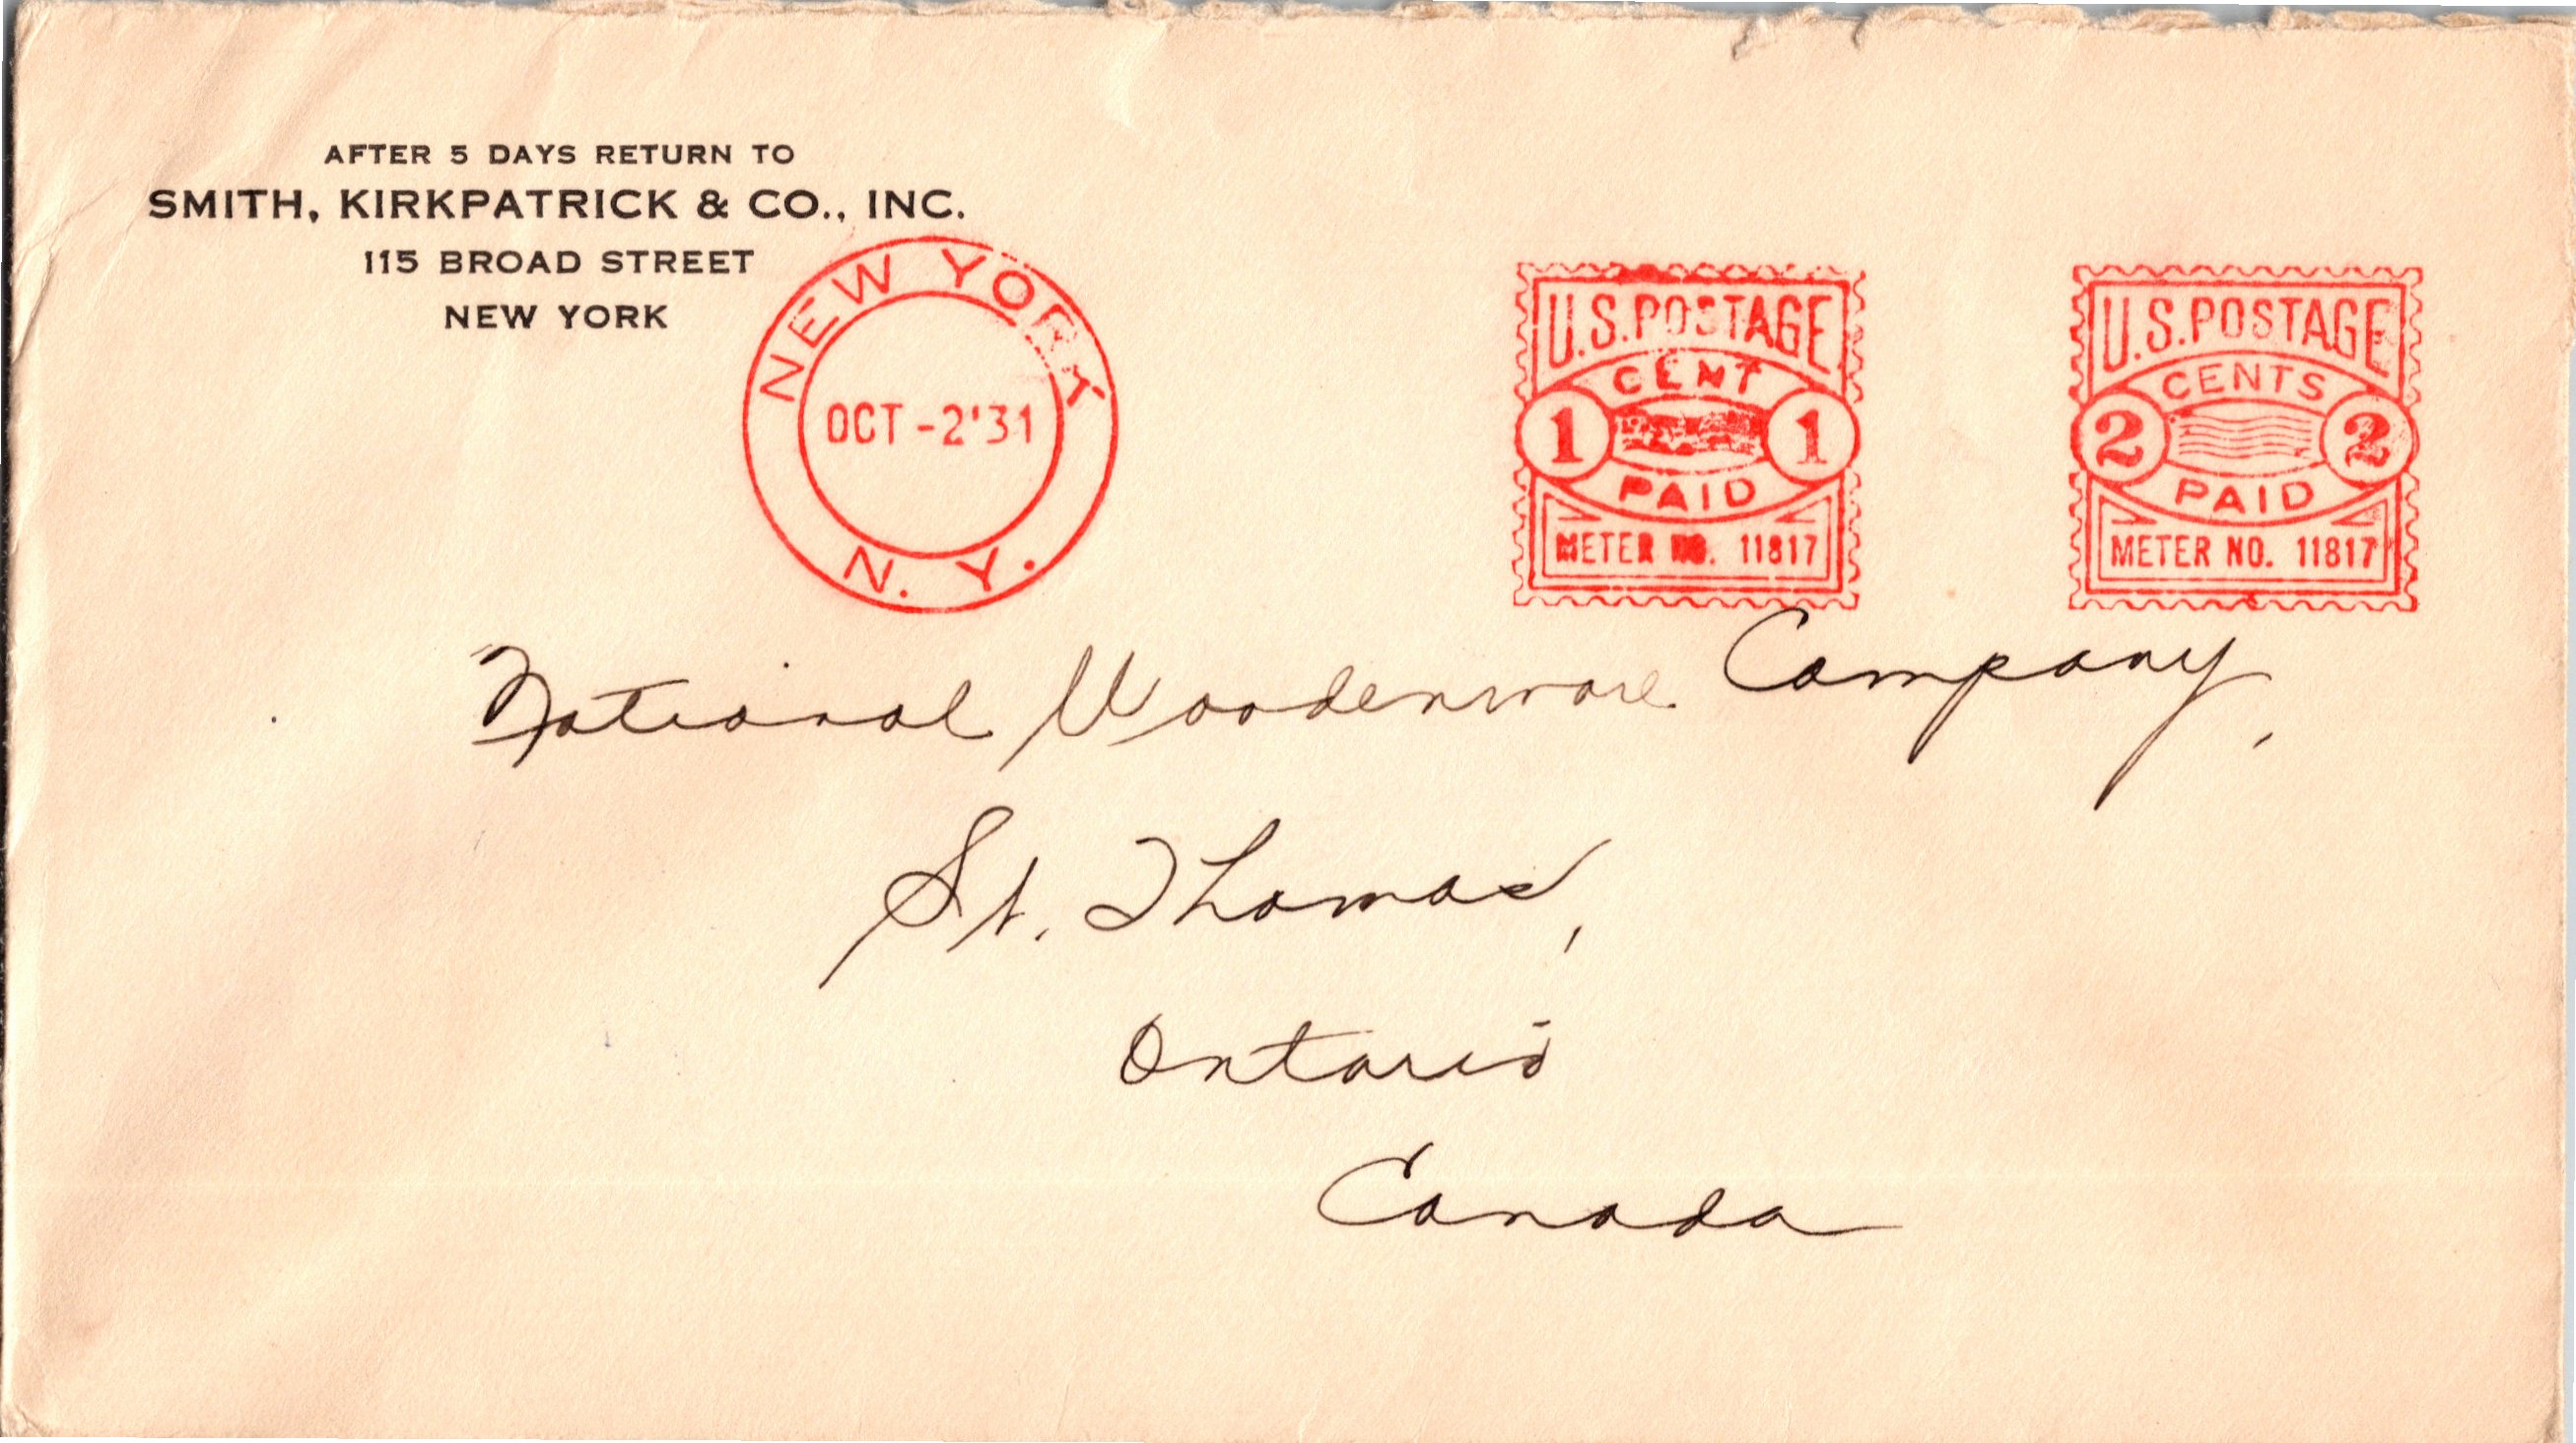 AFTER 5 DAYS RETURN TO
SMITH, KIRKPATRICK & CO., INC.
115 BROAD STREET
NEW YORK
NEW YORK
OCT -2'31
N. Y.
U.S. POSTAGE
CENT
1 1
PAID
METER NO. 11817
U.S. POSTAGE
CENTS
2 2
PAID
METER NO. 11817
National Woodenware Company,
St. Thomas,
Ontario
Canada